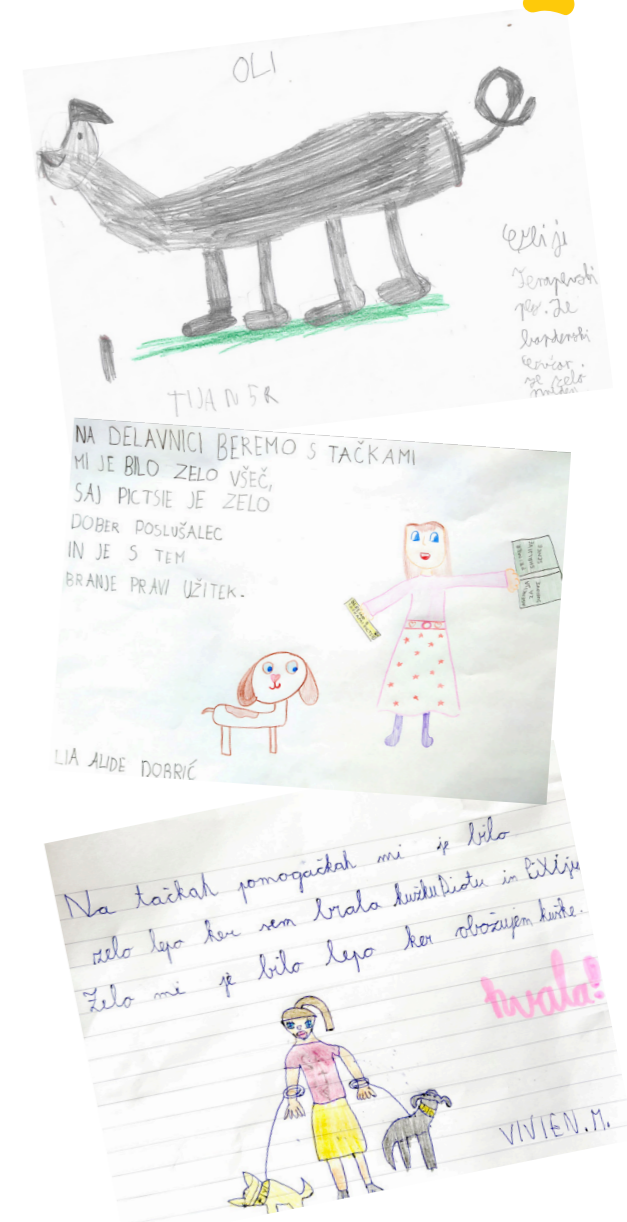 OLI
Oli je
terapevtski
pes. Je
borderski
ovčar.
je zelo
TIJAN 5R
NA DELAVNICI BEREMO S TAČKAMI
MI JE BILO ZELO VŠEČ,
SAJ PICTSIE JE ZELO
DOBER POSLUŠALEC
IN JE S TEM
BRANJE PRAVI UŽITEK.
LIA ALIDE DOBRIČ
Na tačkah pomogačkah mi je bilo
zelo lepo ker sem brala kužku Diotu in Pixiju
Zelo mi je bilo lepo ker obožujem kužke.
hvala!
VIVIEN. M.